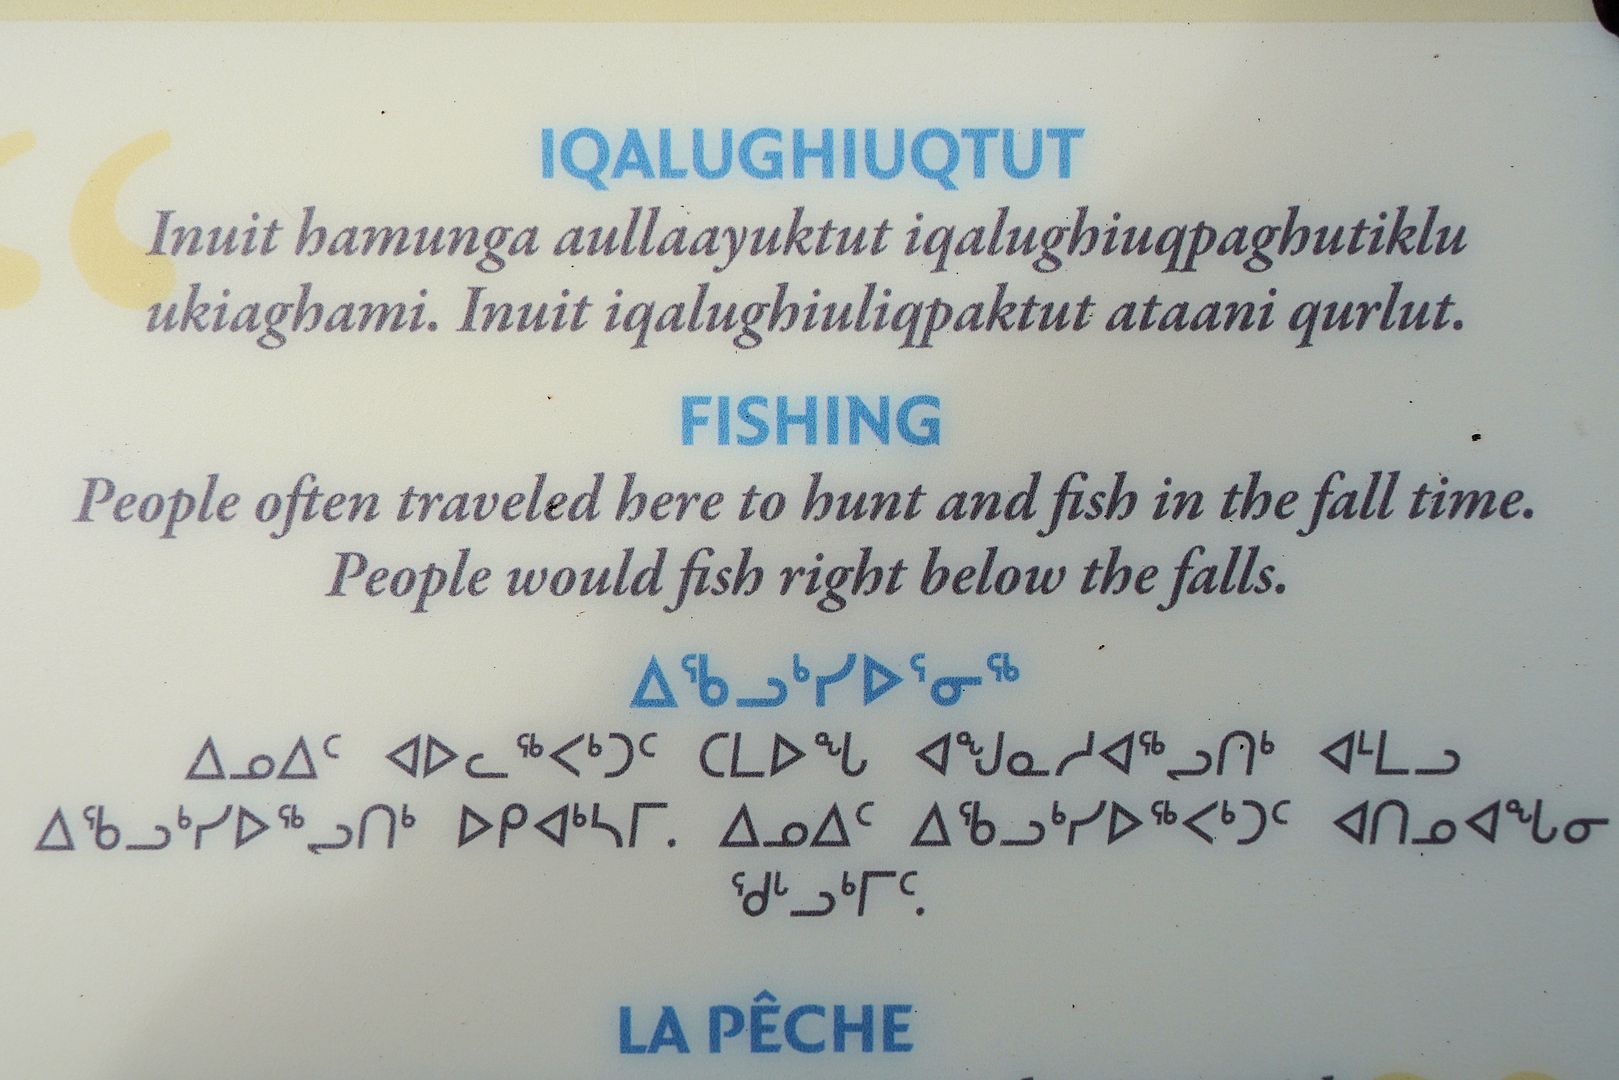 IQALUGHIUQTUT
Inuit hamunga aullaayuktut iqalughiuqpaghutiklu
ukiaghami. Inuit iqalughiuliqpaktut ataani qurlut.
FISHING
People often traveled here to hunt and fish in the fall time.
People would fish right below the falls.
ᐃᖃᓗᒃᓯᐅᕐᓂᖅ
ᐃᓄᐃᑦ ᐊᐅᓪᓚᖅᐸᒃᑐᑦ ᑕᒪᐅᖓ ᐊᖑᓇᓱᐊᖅᖢᑎᒃ ᐊᒻᒪᓗ
ᐃᖃᓗᒃᓯᐅᖅᖢᑎᒃ ᐅᑭᐊᒃᓴᒥ. ᐃᓄᐃᑦ ᐃᖃᓗᒃᓯᐅᖅᐸᒃᑐᑦ ᐊᑎᓄᐊᖓᓂ
ᖁᒡᓗᒃᒥᑦ.
LA PÊCHE